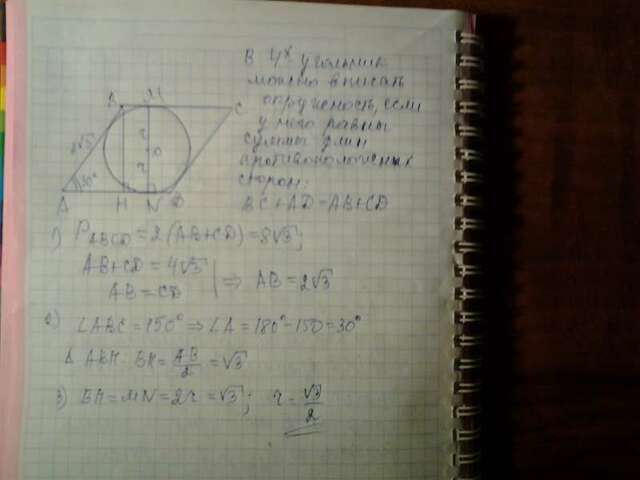 В 4х угольник
можно вписать
окружность, если
у него равны
суммы длин
противоположных
сторон:
BC+AD=AB+CD
B M C
2√3 r O
30° r
A H N D
1) P ABCD = 2(AB+CD)=8√3;
AB+CD=4√3
AB=CD ⇒ AB=2√3
2) ∠ABC=150° ⇒ ∠A=180°-150=30°
Δ ABH BH= AB/2 =√3
3) BH=MN=2r=√3; r= √3/2